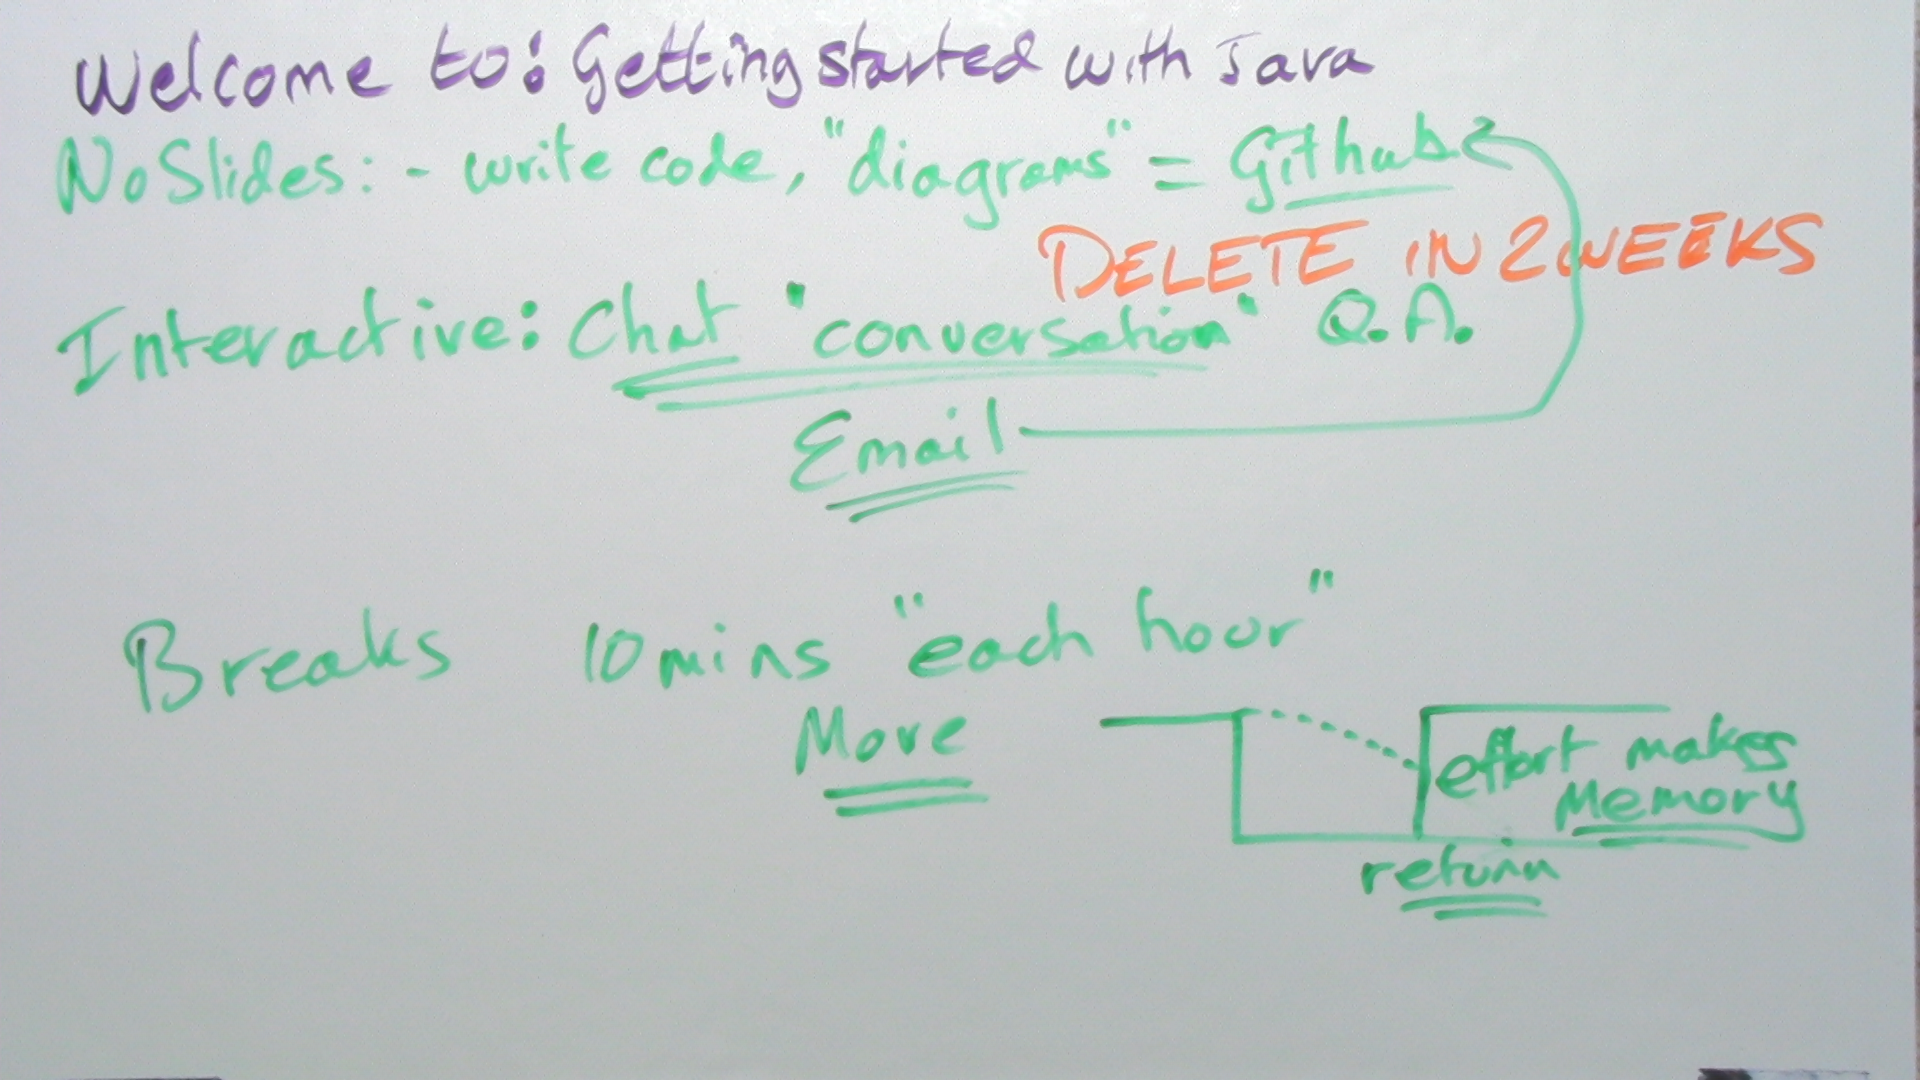 Welcome to: Getting started with Java
No Slides: - write code, "diagrams" = Github
DELETE IN 2 WEEKS
Interactive: Chat "conversation" Q.A.
Email
Breaks 10 mins "each hour"
Move
effort makes
Memory
return